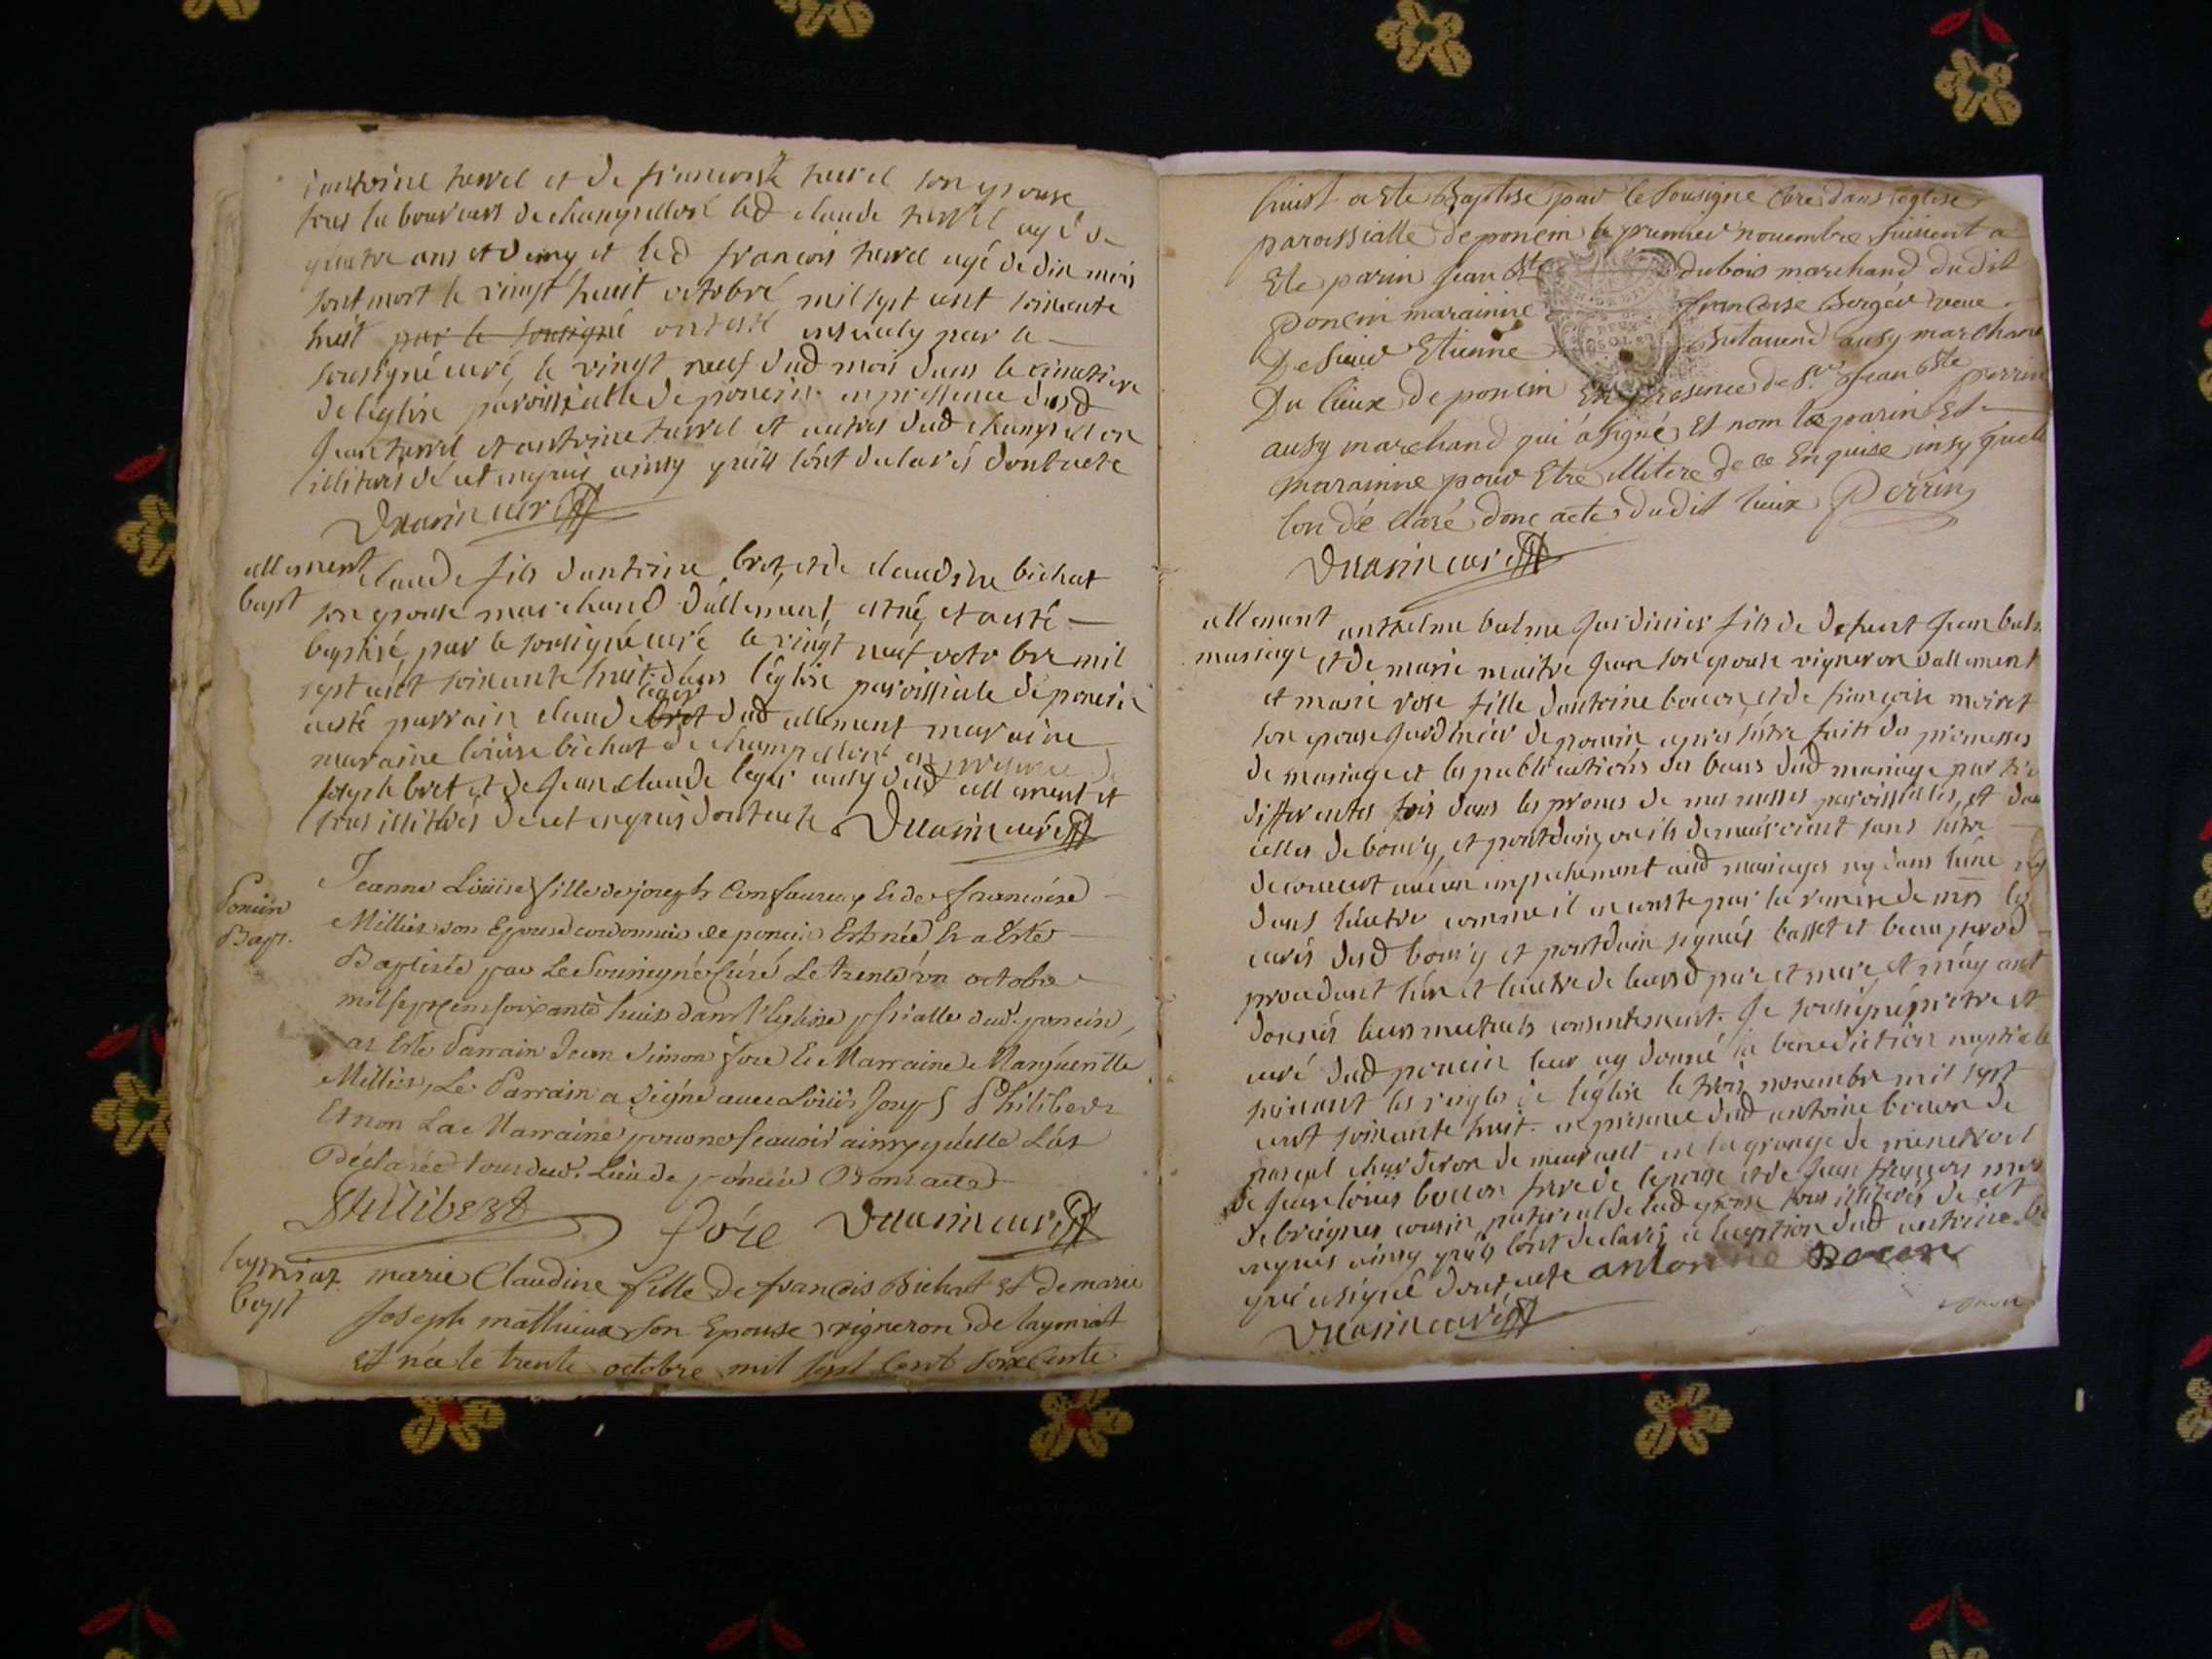 antoine turrel et de francoise turrel son epouse
tous laboureurs de champeillon led claude turrel agé de
quatre ans et demy et led francois turrel agé de dix mois
sont mort le vingt huit octobre mil sept cent soixante
huit par le sousigné ont esté ensevely par le
sousigné curé, le vingt neuf dud mois dans le cimetiere
de l'eglise paroissialle de poncin en pressence dusd
Jean turrel et antoine turrel et autres dud champeillon
illiterés de cet enquis ainsy quils lont declarés dont acte
Duarin curé
allement
bapt
claude fils dantoine bret, et de claudine bichat
son epouse marchand dallement, est né, et a esté
baptisé, par le sousigné curé le vingt neuf octobre mil
sept cent soixante huit dans l'église paroissiale de poncin
a esté parrain claude bret leger dud allement maraine
maraine louise bichat de champeillon en presence de
joseph bret et de Jean claude leger ausy dud allement et
tous illiterés de cet enquis dont acte Duarin curé
Poncin
Bapt.
Jeanne Loüise fille de joseph Confaureux Et de francoise
Millier son Epouse cordonnier de poncin Est née Et a Este
Baptisée par Le Sousigné Curé Le trente un octobre
mil sept cent soixante huit dans l'Eglise pssialle dud. poncin,
at Este Parrain Jean Simon fore Et Marraine Margueritte
Millier, Le Parrain a Signé avec Loüis Joseph Philibert
Et non La Marraine pour ne scauoir ainsy quelle L'at
Déclarée tous dud. Lieu de poncin Dont acte
Philibert fore Duarin curé
leymiat
bapt
marie Claudine fille de francois Bichat Et de marie
Joseph mathieux son Epouse vigneron de laymiat
Et née le trente octobre mil sept Cent soixcente
huist a Este Baptise par le sousigne Cure dans leglise
paroissialle de poncin le premier nouembre suiuent a
Ete parin Jean Bte dubois marchand dudit
Poncin marainne francoise Bergér veue
De sieur Etienne Butauand ausy marchand
Du lieux de poncin En presence de Sr. Jean Bte perrin
ausy marchand qui a signé Et nom le parin Et
marainne pour Etre illitere de ce Enquise insy quell
lon dé claré donc acte dudit lieux Perrin
Duarin curé
allement
mariage
anthelme balme Jardinier fils de defunt Jean balm
et de marie maitre Jean son epouse vigneron dallement
et marie rose fille dantoine bocon, et de francoise moiret
son epouse Jardinier de poncin apres sestre faits des promesses
de mariage et les publications des bans dud mariage par trois
differentes fois dans les prones de mes messes paroissialles, et dan
celles de bourg, et pontdain, ou ils demeuroient sans sestre
decouvert aucun enpechement aud mariages ny dans lune ny
dans lautre comme il en conste par la remise de mrs les
curés desd bourg et pontdain signés basset et beaupered
procedant lun et lautre de leursd pere et mere, et m'ay ant
donnés leurs mutuels consentement. Je sousigné pretre et
curé dud poncin leur ay donné la benediction nuptiale
suivant les regles de l'église le trois novembre mil sept
cent soixante huit. en presence dud antoine bocon de
pascal charderon demeurant en la grange de menetruel
de Jean louis bocon frere de lepouse et de Jean francois
de breignes cousin paternel de lad epouse tous illiterés de cet
enquis ainsy quils lont declarés a lexeption dud antoine bo
qui a signé dont acte antonine Bocon
Duarin curé